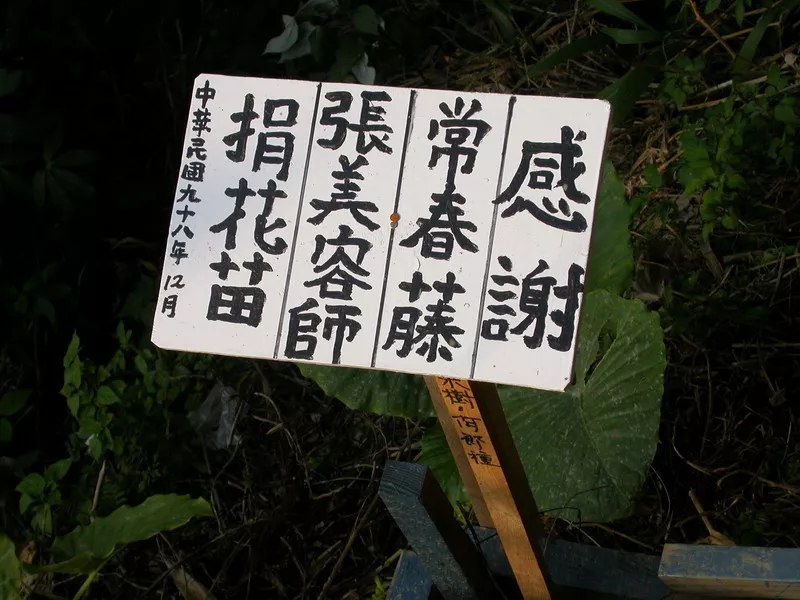 感謝
常春藤
張美容師
捐花苗
中華民國九十八年12月
樹·阿郎種